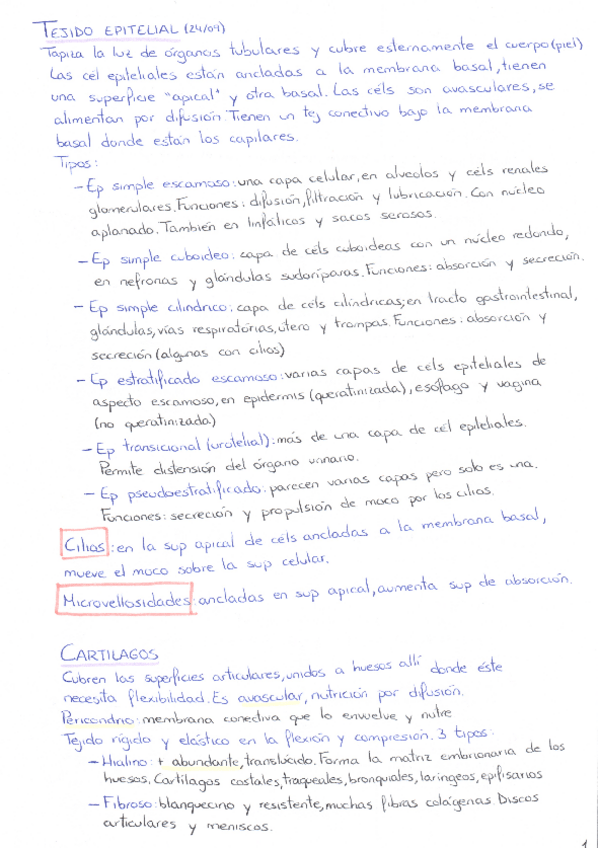 TEJIDO EPITELIAL (24/09)
Tapiza la luz de órganos tubulares y cubre externamente el cuerpo (piel)
Las cél epiteliales están ancladas a la membrana basal, tienen
una superficie "apical" y otra basal. Las céls son avasculares, se
alimentan por difusión. Tienen un tej conectivo bajo la membrana
basal donde están los capilares.
Tipos:
- Ep simple escamoso: una capa celular, en alveolos y céls renales
glomerulares. Funciones: difusión, filtración y lubricación. Con núcleo
aplanado. También en linfáticos y sacos serosos.
- Ep simple cuboideo: capa de céls cuboideas con un núcleo redondo,
en nefronas y glándulas sudoríparas. Funciones: absorción y secreción.
- Ep simple cilíndrico: capa de céls cilíndricas; en tracto gastrointestinal,
glándulas, vías respiratorias, útero y trompas. Funciones: absorción y
secreción (algunas con cilios)
- Ep estratificado escamoso: varias capas de cels epiteliales de
aspecto escamoso, en epidermis (queratinizada), esófago y vagina
(no queratinizada)
- Ep transicional (urotelial): más de una capa de cél epiteliales.
Permite distensión del órgano urinario.
- Ep pseudoestratificado: parecen varias capas pero solo es una.
Funciones: secreción y propulsión de moco por los cilios.
Cilios: en la sup apical de céls ancladas a la membrana basal,
mueve el moco sobre la sup celular.
Microvellosidades: ancladas en sup apical, aumenta sup de absorción.
CARTILAGOS
Cubren las superficies articulares, unidos a huesos allí donde éste
necesita flexibilidad. Es avascular, nutrición por difusión.
Pericondrio: membrana conectiva que lo envuelve y nutre
Tejido rígido y elástico en la flexión y compresión. 3 tipos:
- Hialino: + abundante, translúcido. Forma la matriz embrionaria de los
huesos. Cartílagos costales, traqueales, bronquiales, laríngeos, epifisarios
- Fibroso: blanquecino y resistente, muchas fibras colágenas. Discos
articulares y meniscos.
1